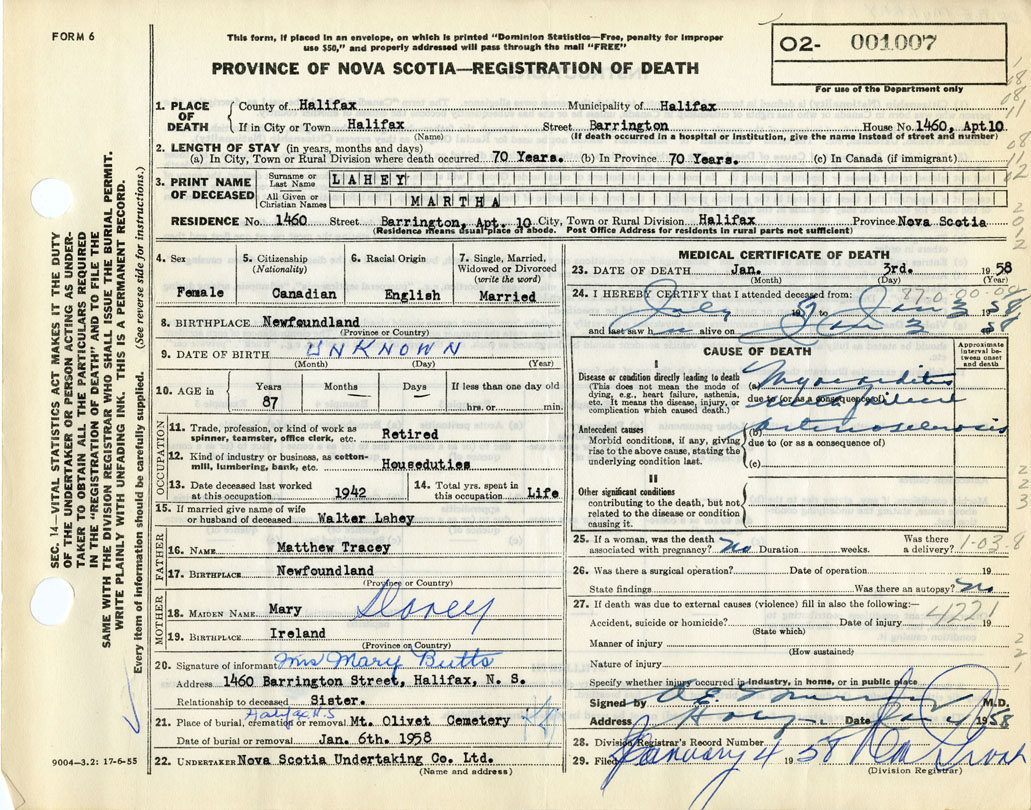 FORM 6
This form, if placed in an envelope, on which is printed "Dominion Statistics—Free, penalty for improper
use $50," and properly addressed will pass through the mail "FREE"
PROVINCE OF NOVA SCOTIA—REGISTRATION OF DEATH
O2- 001007
For use of the Department only
SEC. 14—VITAL STATISTICS ACT MAKES IT THE DUTY
OF THE UNDERTAKER OR PERSON ACTING AS UNDER-
TAKER TO OBTAIN ALL THE PARTICULARS REQUIRED
IN THE "REGISTRATION OF DEATH" AND TO FILE THE
SAME WITH THE DIVISION REGISTRAR WHO SHALL ISSUE THE BURIAL PERMIT.
WRITE PLAINLY WITH UNFADING INK. THIS IS A PERMANENT RECORD.
Every item of information should be carefully supplied. (See reverse side for instructions.)
1. PLACE OF DEATH County of Halifax Municipality of Halifax
If in City or Town Halifax Street Barrington House No. 1460, Apt.10
(Name) (If death occurred in a hospital or institution, give the name instead of street and number)
2. LENGTH OF STAY (in years, months and days)
(a) In City, Town or Rural Division where death occurred 70 Years. (b) In Province 70 Years. (c) In Canada (if immigrant)
3. PRINT NAME OF DECEASED Surname or Last Name LAHEY
All Given or Christian Names MARTHA
RESIDENCE No. 1460 Street Barrington, Apt. 10 City, Town or Rural Division Halifax Province Nova Scotia
(Residence means usual place of abode. Post Office Address for residents in rural parts not sufficient)
4. Sex Female
5. Citizenship (Nationality) Canadian
6. Racial Origin English
7. Single, Married, Widowed or Divorced (write the word) Married
8. BIRTHPLACE Newfoundland
(Province or Country)
9. DATE OF BIRTH UNKNOWN
(Month) (Day) (Year)
10. AGE in Years 87 Months — Days — If less than one day old
hrs. or min.
OCCUPATION
11. Trade, profession, or kind of work as
spinner, teamster, office clerk, etc. Retired
12. Kind of industry or business, as cotton-
mill, lumbering, bank, etc. Houseduties
13. Date deceased last worked
at this occupation 1942
14. Total yrs. spent in
this occupation Life
15. If married give name of wife
or husband of deceased Walter Lahey
FATHER
16. NAME Matthew Tracey
17. BIRTHPLACE Newfoundland
(Province or Country)
MOTHER
18. MAIDEN NAME Mary
19. BIRTHPLACE Ireland
(Province or Country)
20. Signature of informant Mrs Mary Butts
Address 1460 Barrington Street, Halifax, N. S.
Relationship to deceased Sister.
Halifax N.S
21. Place of burial, cremation or removal Mt. Olivet Cemetery
Date of burial or removal Jan. 6th. 1958
22. UNDERTAKER Nova Scotia Undertaking Co. Ltd.
(Name and address)
9004—3.2: 17-6-55
MEDICAL CERTIFICATE OF DEATH
23. DATE OF DEATH Jan. 3rd. 1958
(Month) (Day) (Year)
24. I HEREBY CERTIFY that I attended deceased from: 87-0-00-08
July 1957 to Jan 3 1958
and last saw h alive on Jan 3 1958
CAUSE OF DEATH
Approximate interval between onset and death
I
Disease or condition directly leading to death
(This does not mean the mode of
dying, e.g., heart failure, asthenia,
etc. It means the disease, injury, or
complication which caused death.)
(a) Myocarditis
due to (or as a consequence of)
Antecedent causes
Morbid conditions, if any, giving
rise to the above cause, stating the
underlying condition last.
(b) arteriosclerosis
due to (or as a consequence of)
(c)
II
Other significant conditions
contributing to the death, but not
related to the disease or condition
causing it.
25. If a woman, was the death
associated with pregnancy? No Duration weeks. Was there
a delivery? 1-03 8
26. Was there a surgical operation? Date of operation 19
State findings Was there an autopsy? No
27. If death was due to external causes (violence) fill in also the following:—
Accident, suicide or homicide? Date of injury 4221 19
(State which)
Manner of injury
(How sustained)
Nature of injury
Specify whether injury occurred in industry, in home, or in public place
Signed by M.D.
Address Date Jan 4 1958
28. Division Registrar's Record Number
29. Filed January 4 1958
(Division Registrar)